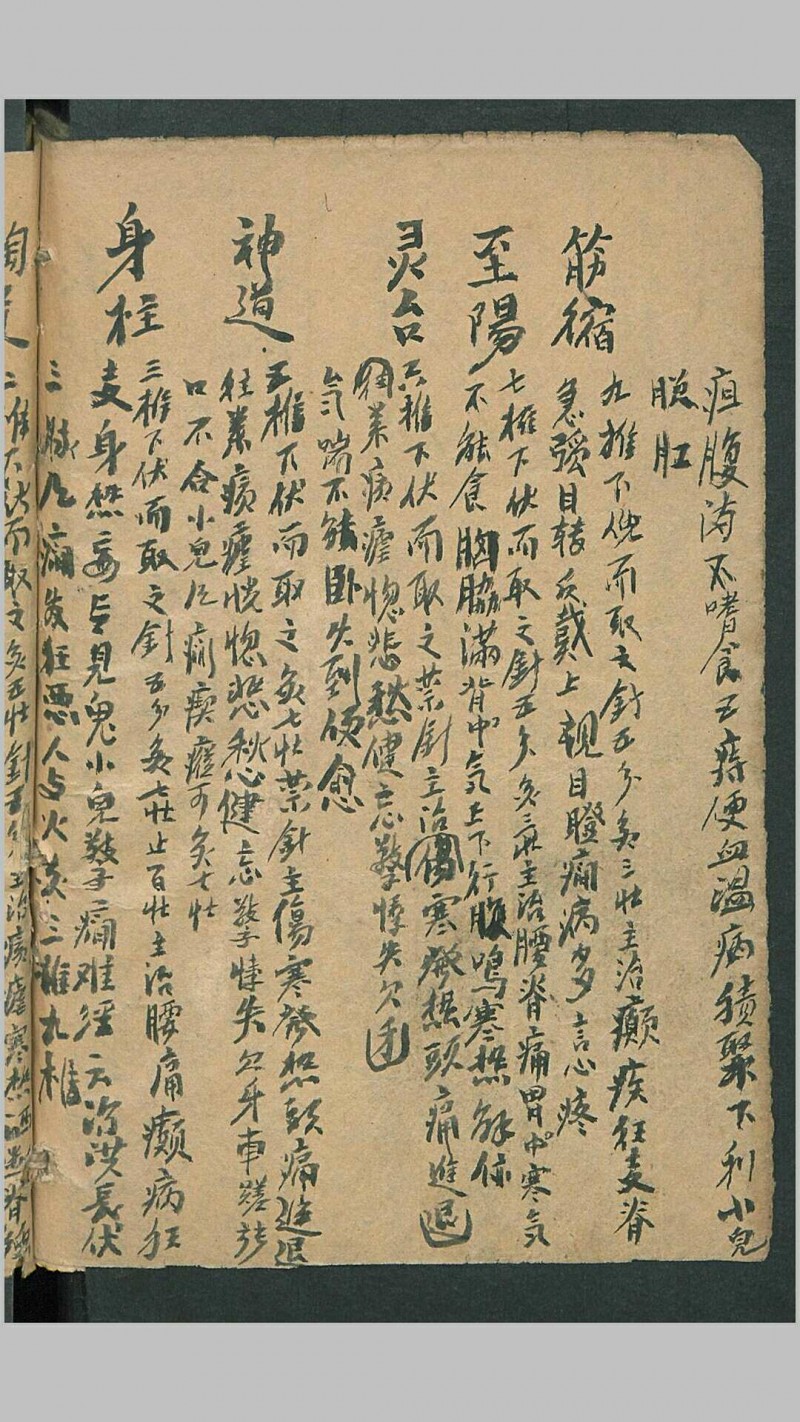 疸腹满不嗜食五痔便血温病積聚下利小兒
脱肛
筋縮
九推下俛而取之針五分灸三壮主治癲疾狂走脊
急强目轉反戴上視目瞪痫病多言心疼
至陽
七椎下伏而取之針五分灸三壮主治腰脊痛胃中寒气
不能食胸脇满背中气上下行腹鳴寒热解体
灵台
六椎下伏而取之禁針主治傷寒發热頭痛進退
往来痎瘧惚悲愁健忘驚悸失欠
气喘不能卧火到便愈
神道
五椎下伏而取之灸七壮禁針主傷寒發热頭痛進退
往来痎瘧恍惚悲愁健忘驚悸失欠牙車蹉
口不合小兒風痫瘈瘲可灸七壮
身柱
三椎下伏而取之針五分灸七壮止百壮主治腰痛癲病狂
走身热妄言見鬼小兒驚痫难經云治洪長伏
三脉风痫發狂恶人与火灸三椎九椎
二椎下伏而取之灸五壮針五分主治痎瘧寒热洒淅脊强